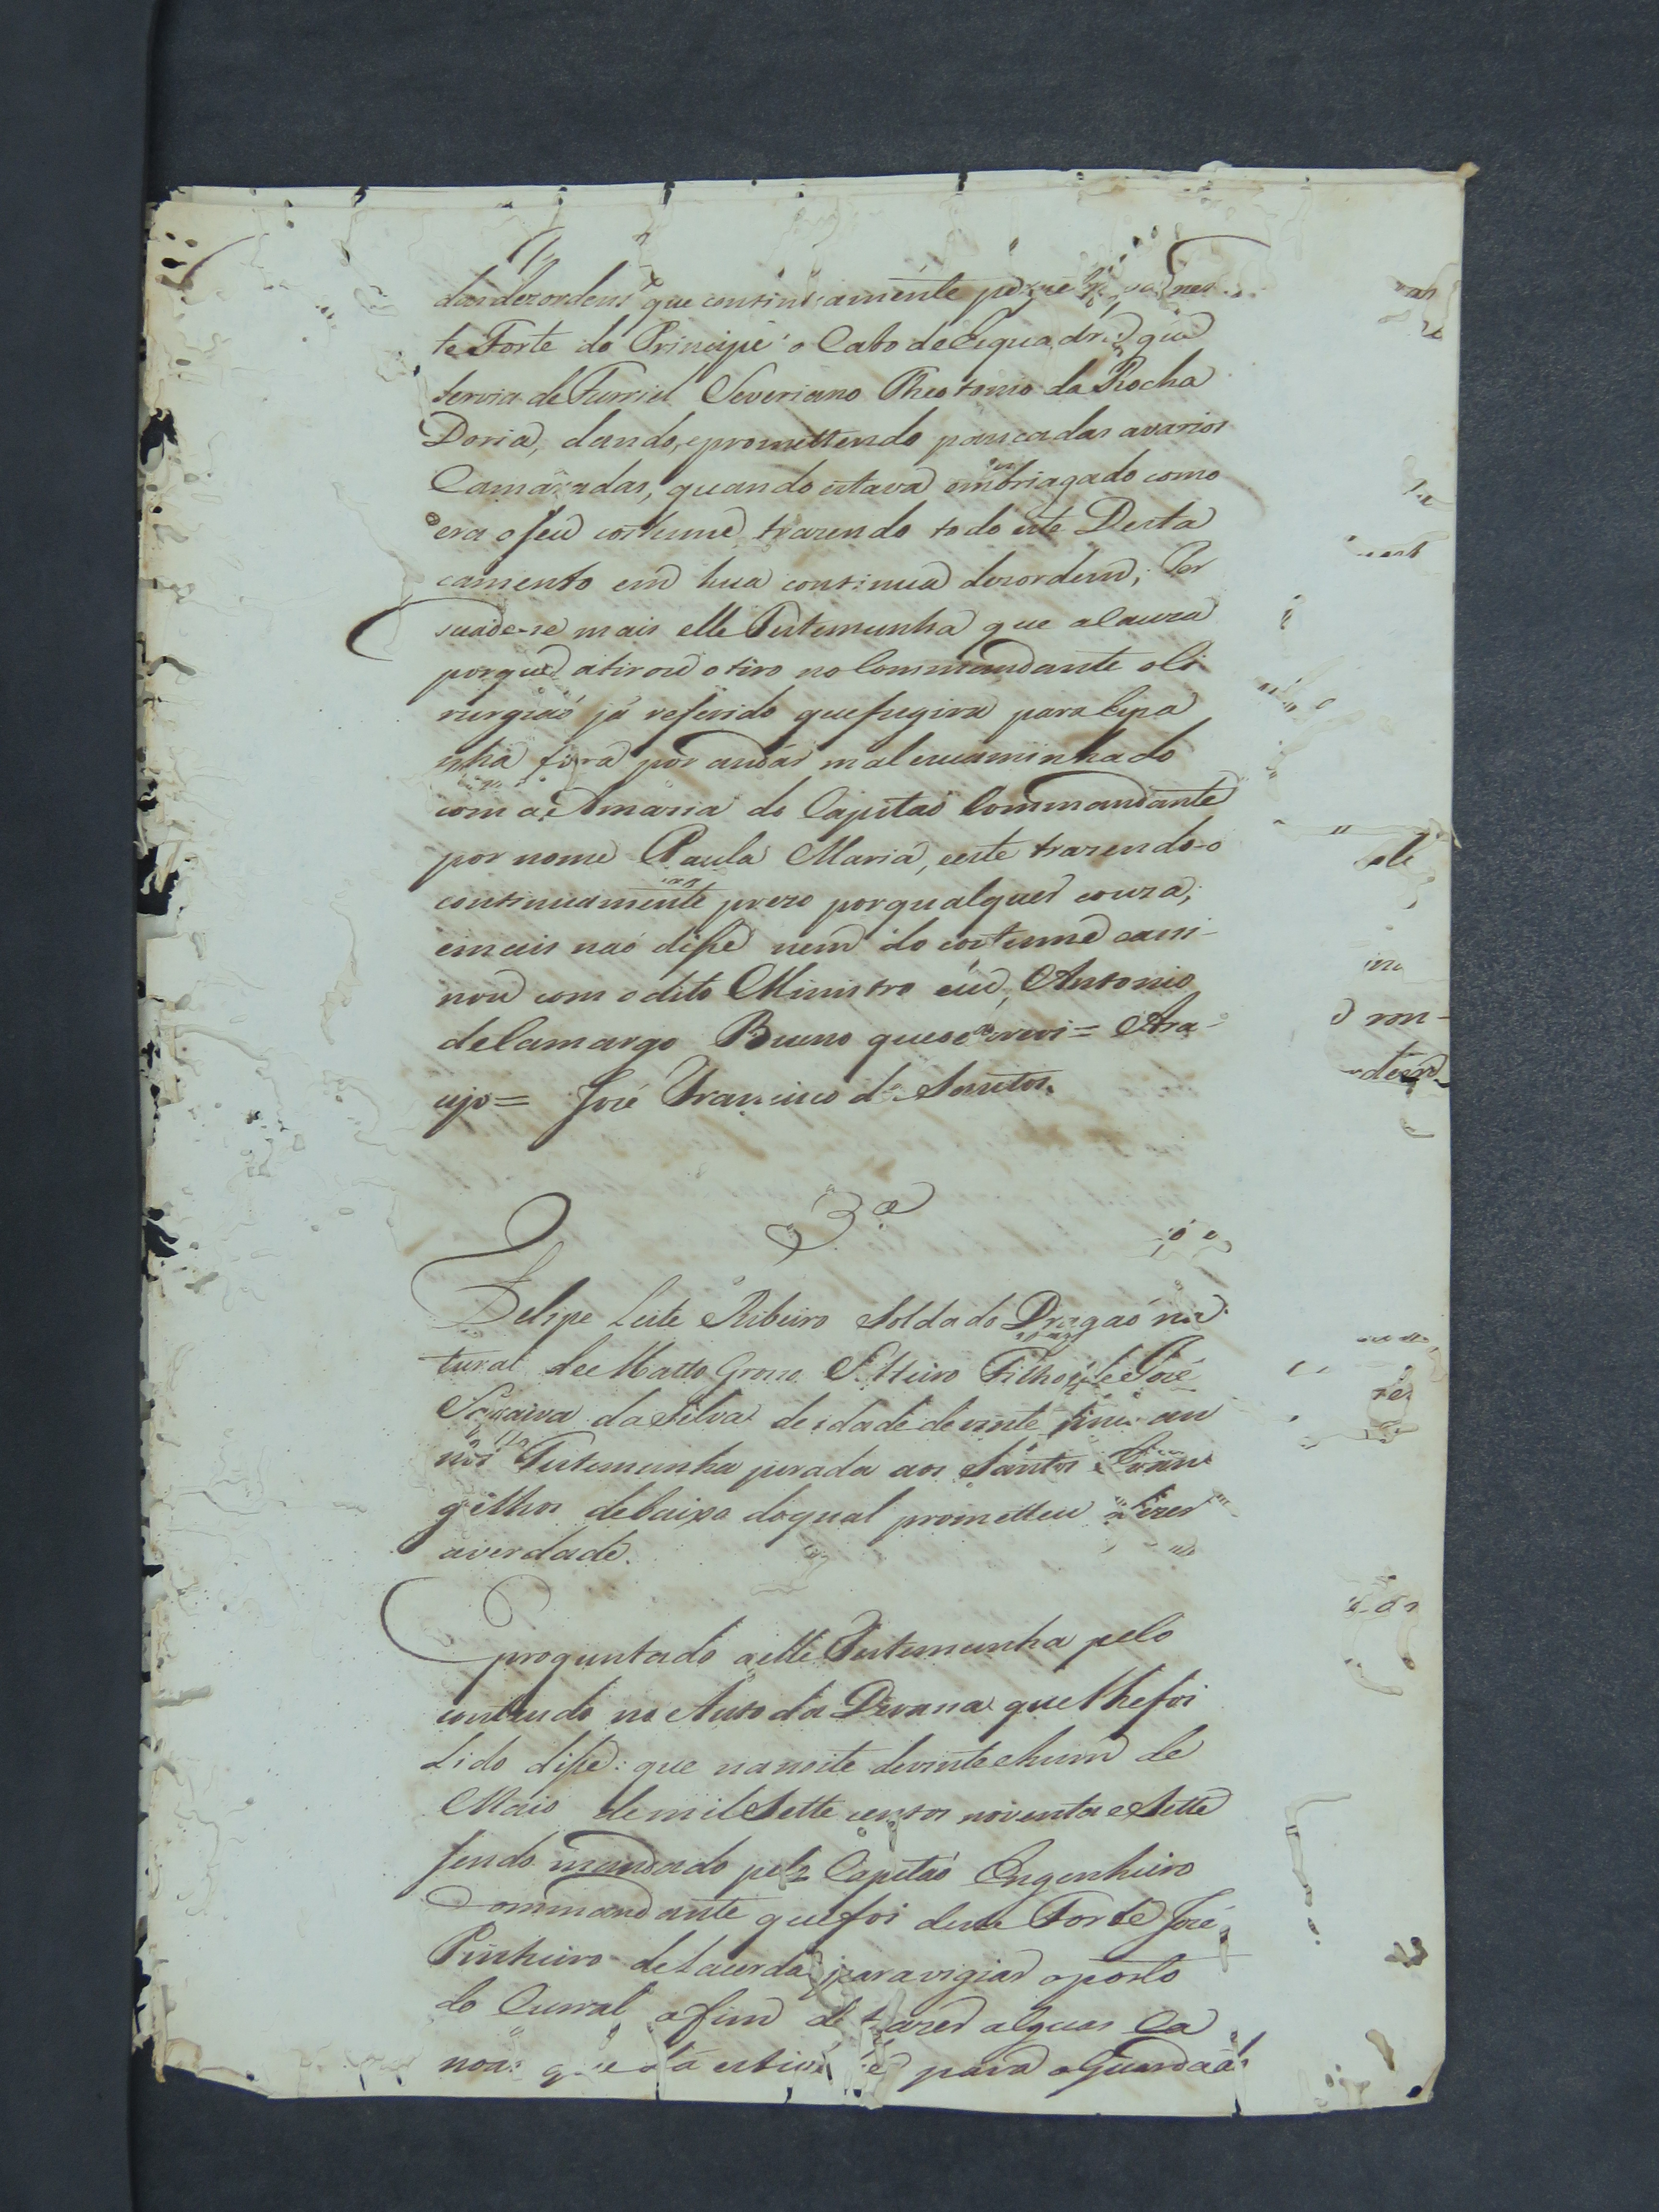 das dezordens que continuamente nes
te Forte do Principe o Cabo de Esquadra que
servia de Furriel Severiano Theotonio da Rocha
Doria, dando, e promettendo pancadas a varios
Camaradas, quando estava embriagado como
era o seu costume, trazendo todo este Desta
camento em hua continua dezordem; Per
suade-se mais elle Testemunha que a cauza
porque atirou o tiro no Commandante o Ci
rurgiaõ já referido que fugira para Espa
nha fora por andar mal encaminhado
com a Amazia do Capitaõ Commandante
por nome Paula Maria, e este trazendo-o
continuamente prezo por qualquer couza;
e mais naõ disse nem do costume e assi-
nou com o dito Ministro eu Antonio
de Camargo Bueno que o escrevi = Ara-
ujo = José Francisco dos Santos.
3ª
Felipe Leite Ribeiro Soldado Dragaõ na
tural de Matto Grosso Solteiro Filho de José
da Silva de idade de vinte an
nos Testemunha jurada aos Santos Evan
gelhos debaixo do qual prometteu dizer
a verdade.
E proguntado a elle Testemunha pelo
contheudo no Auto da Devassa que lhe foi
Lido disse: que na noite de vinte e hum de
Maio de mil Sette centos noventa e Sette
sendo mandado pelo Capitaõ Engenheiro
Commandante que foi deste Forte José
Pinheiro de Lacerda para vigiar o porto
do Curral a fim de trazer alguas Ca
noas que lá para a Guarda